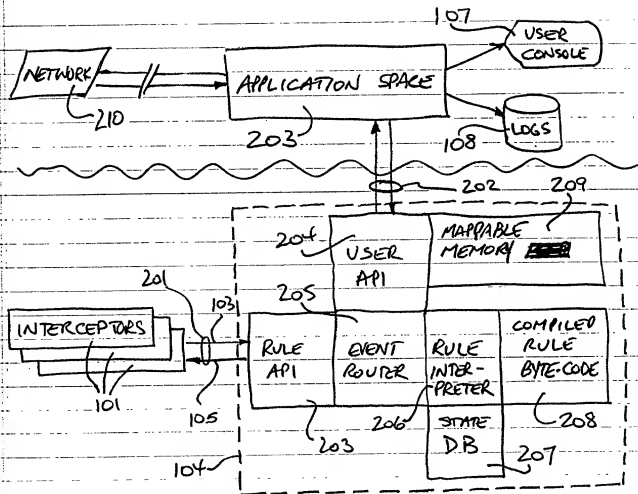 107
USER
CONSOLE
NETWORK
210
APPLICATION SPACE
203
108
LOGS
202
209
204
USER
API
MAPPABLE
MEMORY
201
103
205
INTERCEPTORS
101
105
RULE
API
EVENT
ROUTER
RULE
INTER-
PRETER
206
COMPILED
RULE
BYTE-CODE
208
203
STATE
DB
207
104